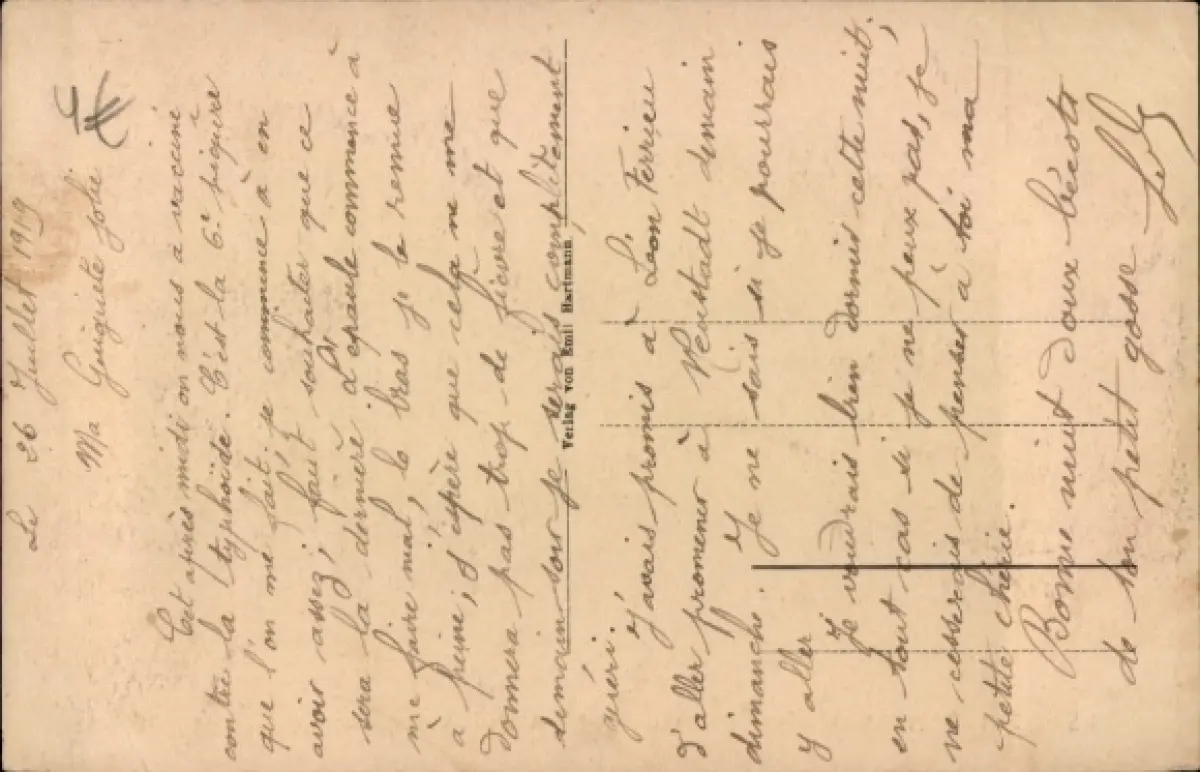 Le 26 Juillet 1919
Ma Guiguite jolie
Cet après midi on nous a vacciné
contre la typhoïde. C'est la 6e piqûre
que l'on me fait, je commence à en
avoir assez, j' faut souhaiter que ce
sera la dernière. L'épaule commence à
me faire mal, le bras je le remue
à peine, j'espère que cela ne me
donnera pas trop de fièvre et que
demain soir je serais complètement
Verlag von Emil Hartmann
guéri.
J'avais promis à Léon Ferrieu
d'aller promener à Neustadt demain
dimanche. Je ne sais si je pourrais
y aller
Je voudrais bien dormir cette nuit,
en tout cas si je ne peux pas, je
ne cesserais de penser à toi ma
petite chérie.
Bonne nuit doux bécots
de ton petit gosse